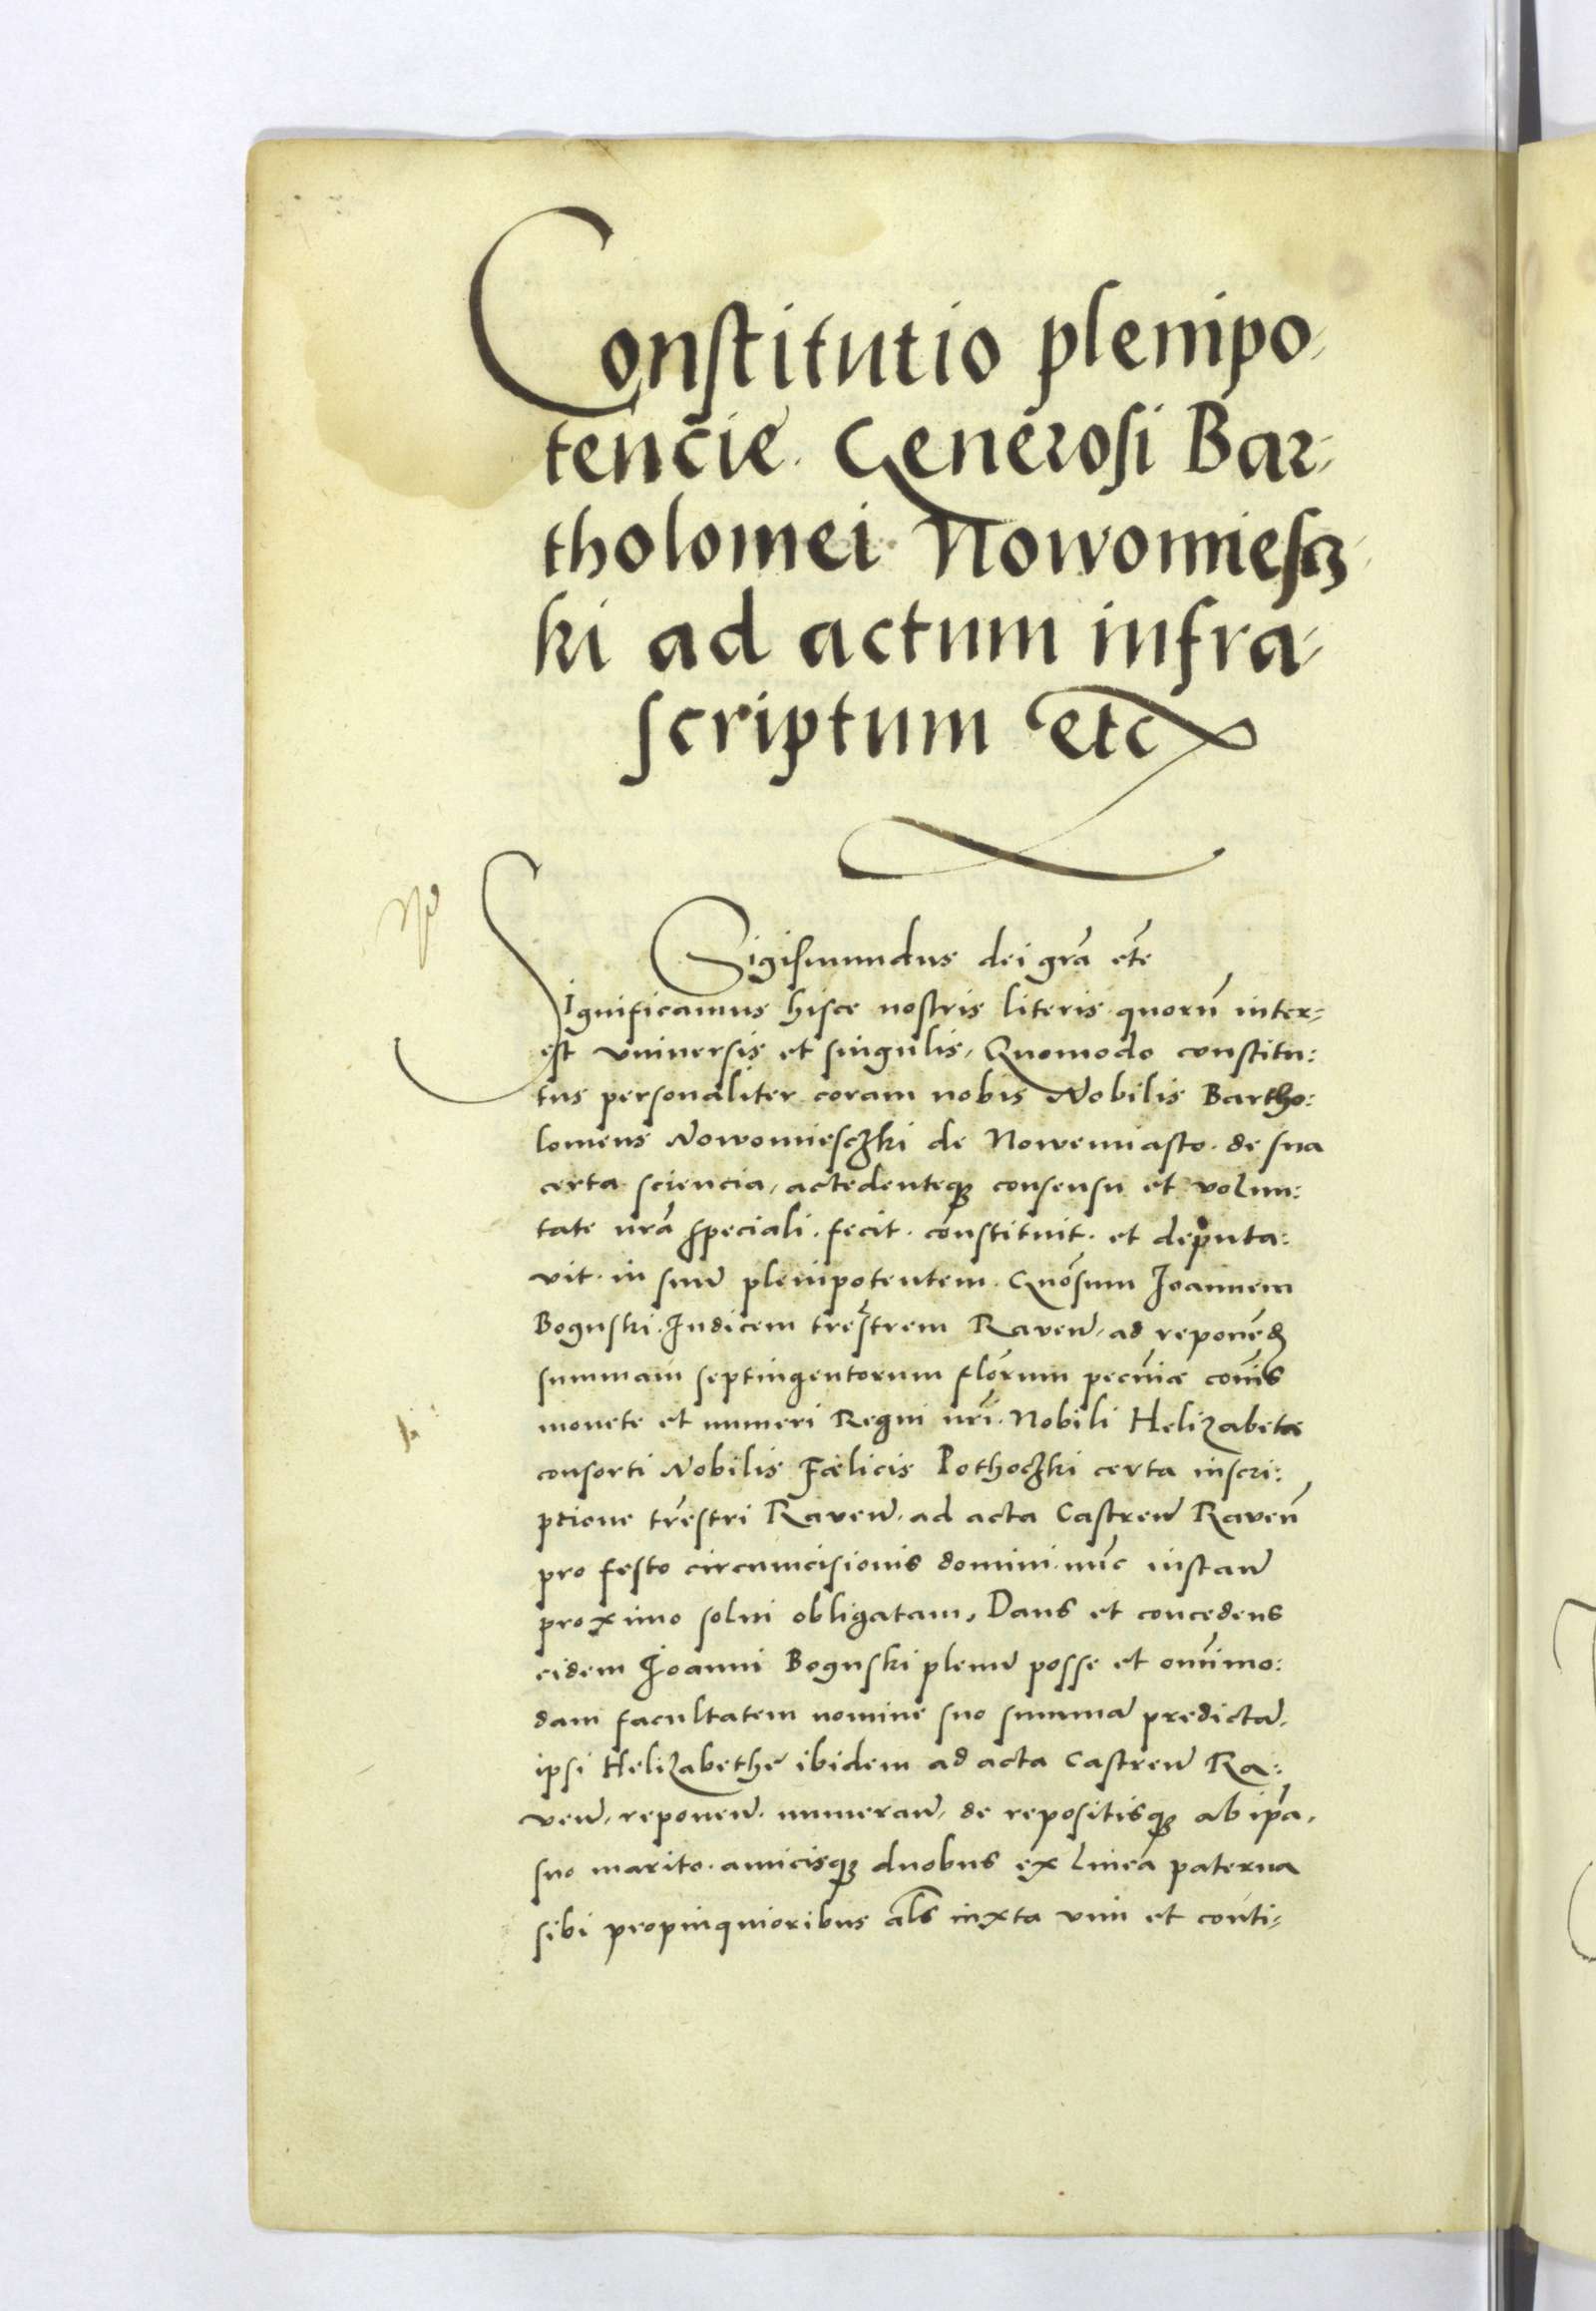 Constitutio plenipo-
tencie. Generosi Bar-
tholomei Nowomiescz-
ki ad actum infra-
scriptum etc
Sigismundus dei grã etc̃
Significamus hisce nostris literis. quorũ inter-
est vniuersis et singulis, Quomodo constitu:
tus personaliter coram nobis Nobilis Bartho:
lomeus Nowomiesczki de Nowemiasto. de sua
certa sciencia, accedenteq; consensu et volun:
tate nrã speciali. fecit. constituit. et deputa:
vit. in suũ plenipotentem. Gnõsum Joannem
Boguski. Judicem trẽstrem Raveñ. ad reponẽd
summam septingentorum flõrum pecũiæ cõis
monete et numeri Regni nrĩ. Nobili Helizabetæ
consorti Nobilis Fœlicis Pothoczki certa inscri:
ptione trẽstri Raveñ. ad acta Castreñ Raveñ
pro festo circumcisionis domini. nũc instañ
proximo solui obligatam. Dans et concedens
eidem Joanni Boguski plenũ posse et omĩmo:
dam facultatem nomine suo summã predictã.
ipsi Helizabethe ibidem ad acta Castreñ Ra:
veñ. reponeñ. numerañ. de repositisq; ab ip̃a.
suo marito. amicisq; duobus ex linea paterna
sibi propinquioribus als̃ iuxta vim et conti-